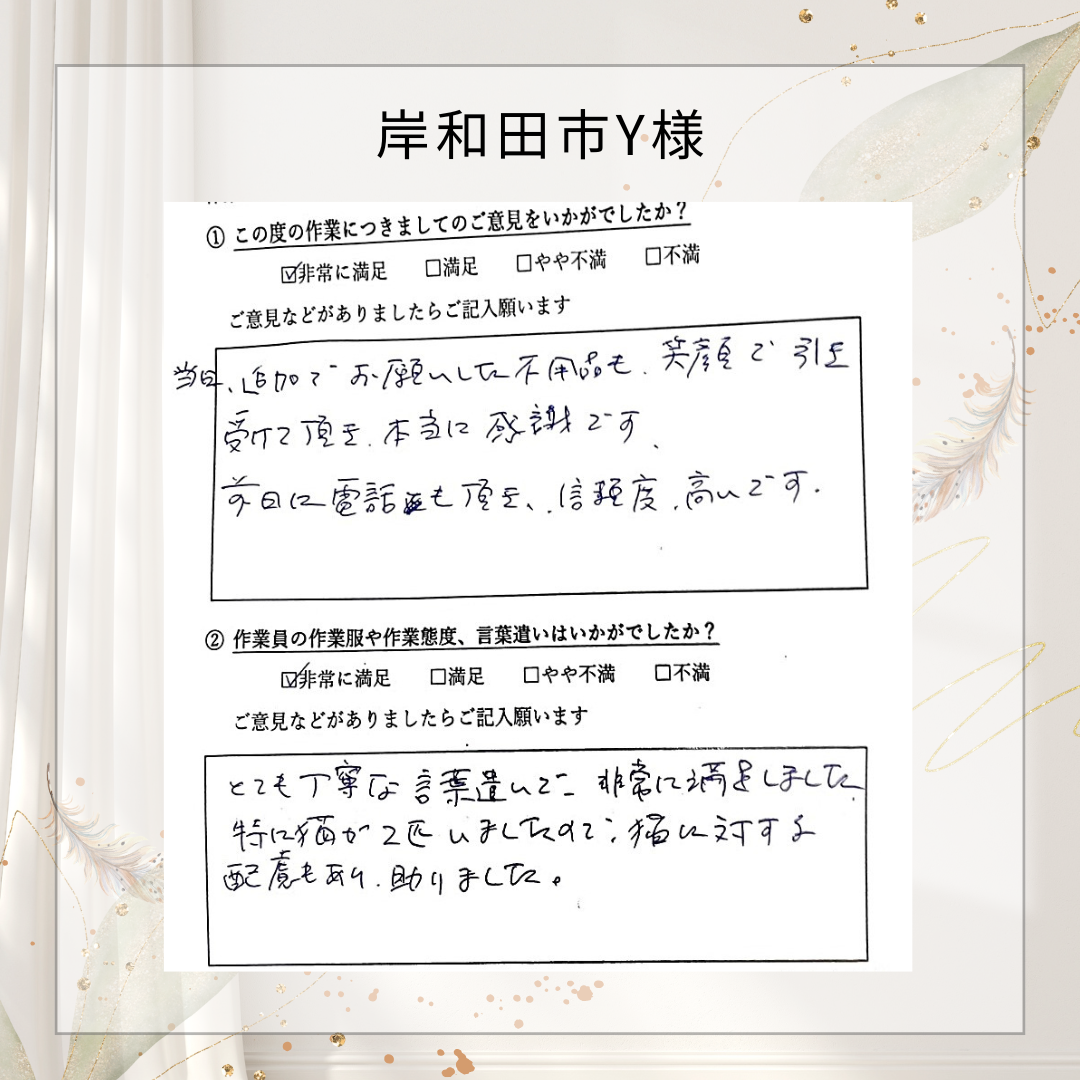 岸和田市Y様
① この度の作業につきましてのご意見をいかがでしたか？
☑非常に満足 □満足 □やや不満 □不満
ご意見などがありましたらご記入願います
当日、追加でお願いした不用品も、笑顔で引き
受けて頂き、本当に感謝です、
前日に電話も頂き、信頼度、高いです.
② 作業員の作業服や作業態度、言葉遣いはいかがでしたか？
☑非常に満足 □満足 □やや不満 □不満
ご意見などがありましたらご記入願います
とても丁寧な言葉遣いで、非常に満足しました
特に猫が2匹いましたので、猫に対する
配慮もあり、助りました。